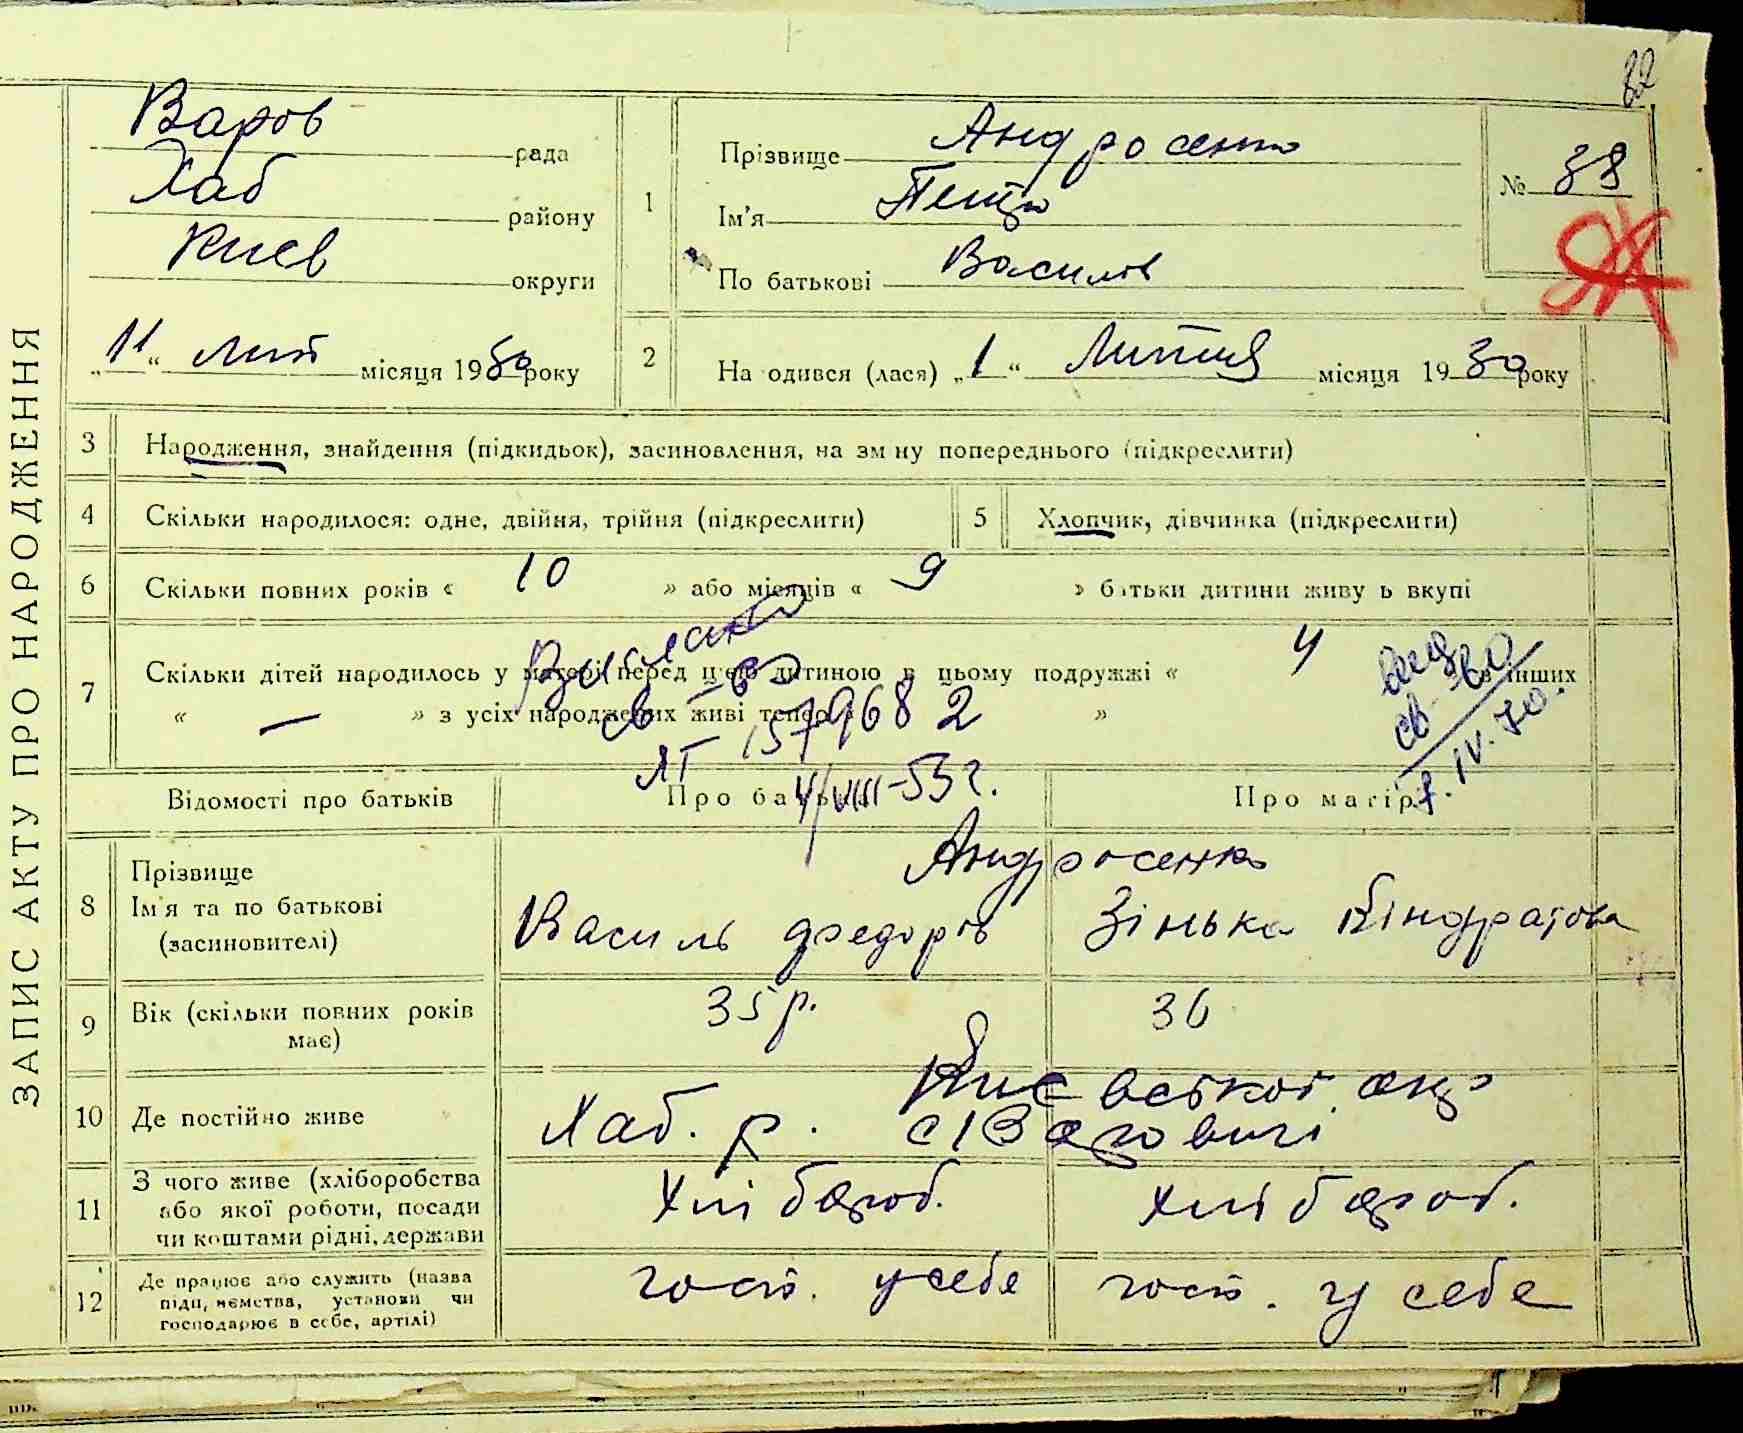 82
ЗАПИС АКТУ ПРО НАРОДЖЕННЯ
Варов рада
Хаб району
Киев округи
„11“ лип місяця 1930 року
1
Прізвище Андросенко
Ім'я Петро
По батькові Василів
№ 38
2
На одився (лася) „1“ Липня місяця 1930 року
3 Народження, знайдення (підкидьок), засиновлення, на зм ну попереднього (підкреслити)
4 Скільки народилося: одне, двійня, трійня (підкреслити)
5 Хлопчик, дівчинка (підкреслити)
6 Скільки повних років « 10 » або місяців « 9 » батьки дитини живу ь вкупі
7 Скільки дітей народилось у матері перед цією дитиною в цьому подружжі « 4 в інших
« — » з усіх народжених живі тепер »
св-во
ЛТ 1579682
4/VIII-53 г.
св-во
IV.70.
Відомості про батьків
Про батька
Про матір
8 Прізвище
Ім'я та по батькові
(засиновителі)
Андросенко
Василь Федоров
Зінька Кіндратова
9 Вік (скільки повних років має)
35 р.
36
10 Де постійно живе
Киевської окр
Хаб. р. с Варовичі
11 З чого живе (хліборобства
або якої роботи, посади
чи коштами рідні, держави
Хлібороб.
Хлібороб.
12 Де працює або служить (назва
підп, нємства, установи чи
господарює в себе, артілі)
госп. у себе
госп. у себе